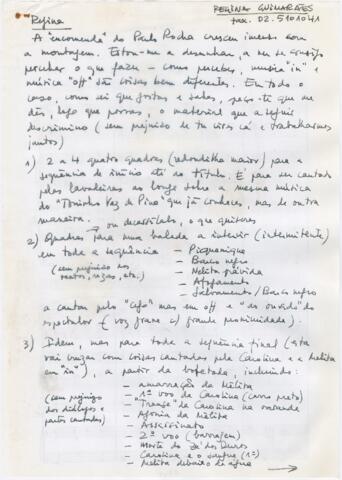 REGINA GUIMARÃES
fax. 02. 5101041
Regina
A "encomenda" do Paulo Rocha cresceu imenso com
a montagem. Estou-me a desenhar, a ver se consigo
perceber o que fazer – como percebes, musica "in" e
música "off" são coisas bem diferentes. Em todo o
caso, como sei que gostas e sabes, peço-te que me
dês, logo que possas, o material que a seguir
descrimino (sem prejuízo de tu vires cá e trabalharmos
juntos)
1) 2 a 4 quatro quadras (redondilha maior) para a
sequência de início até ao título. É para ser cantado
pelas lavadeiras ao longe sobre a mesma música
do "Toninho Vaz de Pina" que já conheces, mas de outra
maneira.
ou decassílabo, o que quiseres
2) Quadras para uma balada a inserir (intermitente)
em toda a sequência
– Picquenique
– Barco negro
– Melita grávida
– Afogamento
– Salvamento / Barco negro
(sem prejuízo nos
cantos, rizas, etc.)
a cantar pelo "cego" mas em off e "ao ouvido" do
espectador (voz grave c/ grande proximidade).
3) Idem, mas para toda a sequência final (esta
vai cruzar com coisas cantadas pela Carolina e a Melita
em "in"), a partir da bofetada, incluindo:
– amarração da Melita
– 1º voo da Carolina (carro preto)
– "Transe" da Carolina na varanda
– Agonia da Melita
– Assassinato
– 2º voo (barragem)
– Morte do Zé dos Ouros
– Carolina e o sangue (1ª)
– Melita debaixo de água
(sem prejuízo
dos diálogos e
partes cantadas)
→